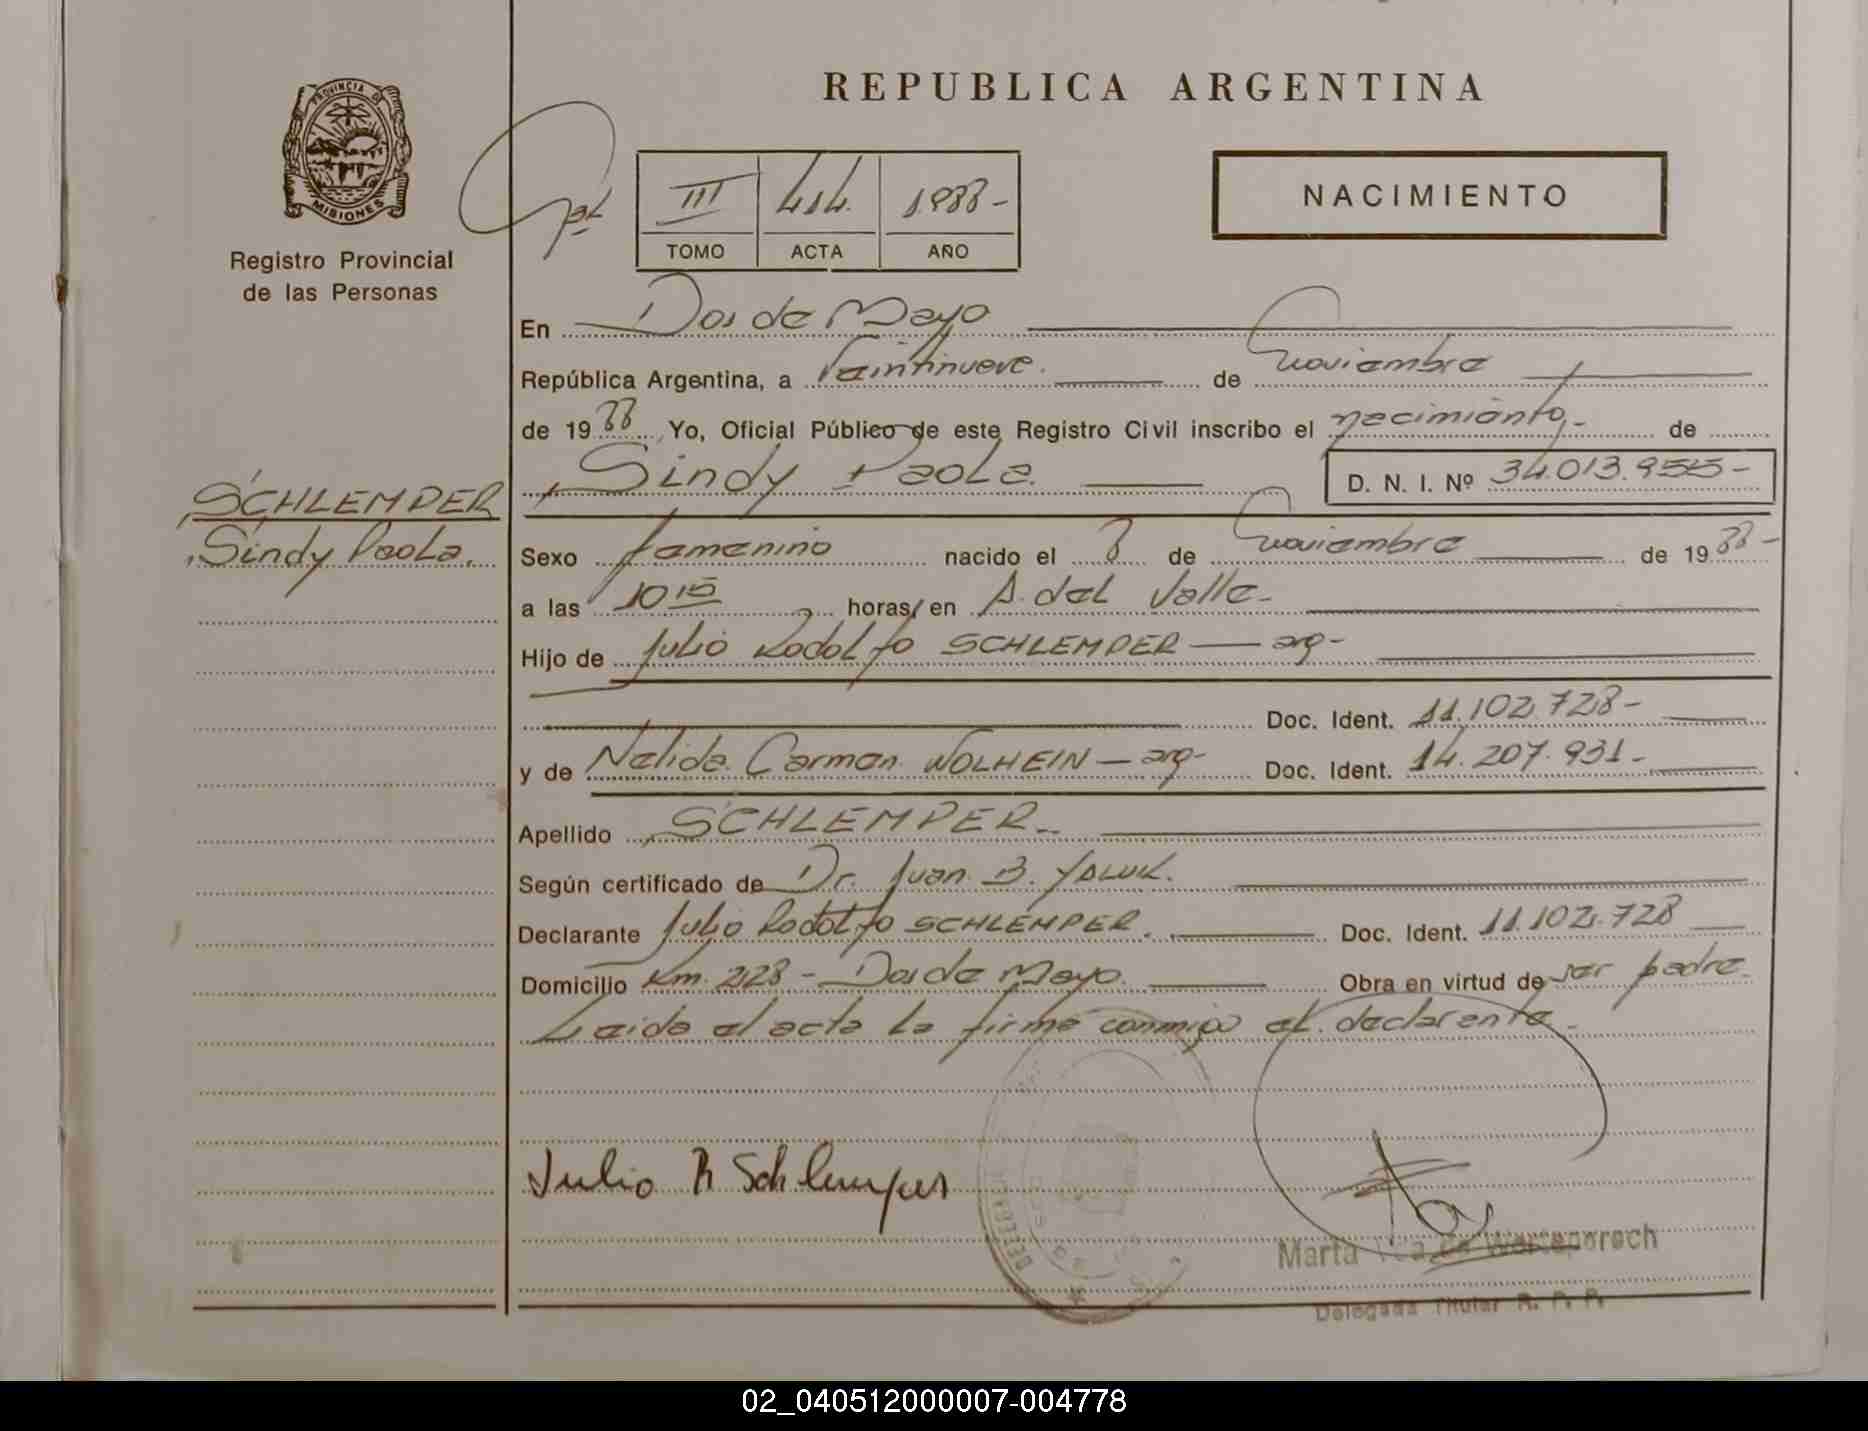 REPUBLICA ARGENTINA
PROVINCIA DE
MISIONES
Registro Provincial
de las Personas
III 414. 1988-
TOMO ACTA AÑO
NACIMIENTO
En Dos de Mayo
República Argentina, a Veintinueve. de Noviembre
de 1988, Yo, Oficial Público de este Registro Civil inscribo el nacimiento.- de
Sindy Paola. D. N. I. Nº 34.013.955-
SCHLEMPER
Sindy Paola.
Sexo femenino nacido el 8 de Noviembre de 1988-
a las 10 15 horas, en A. del Valle-
Hijo de Julio Rodolfo SCHLEMPER — arg-
Doc. Ident. 11.102.728-
y de Nelida Carmen WOLHEIN — arg- Doc. Ident. 14.207.931-
Apellido SCHLEMPER.-
Según certificado de Dr. Juan B. YALUK.
Declarante Julio Rodolfo SCHLEMPER. Doc. Ident. 11.102.728
Domicilio Km. 228 - Dos de Mayo. Obra en virtud de ser padre-
Leida el acta la firma conmigo el declarante-
Julio R Schlemper
Marta de
Delegada Titular R. P. P.
02_040512000007-004778